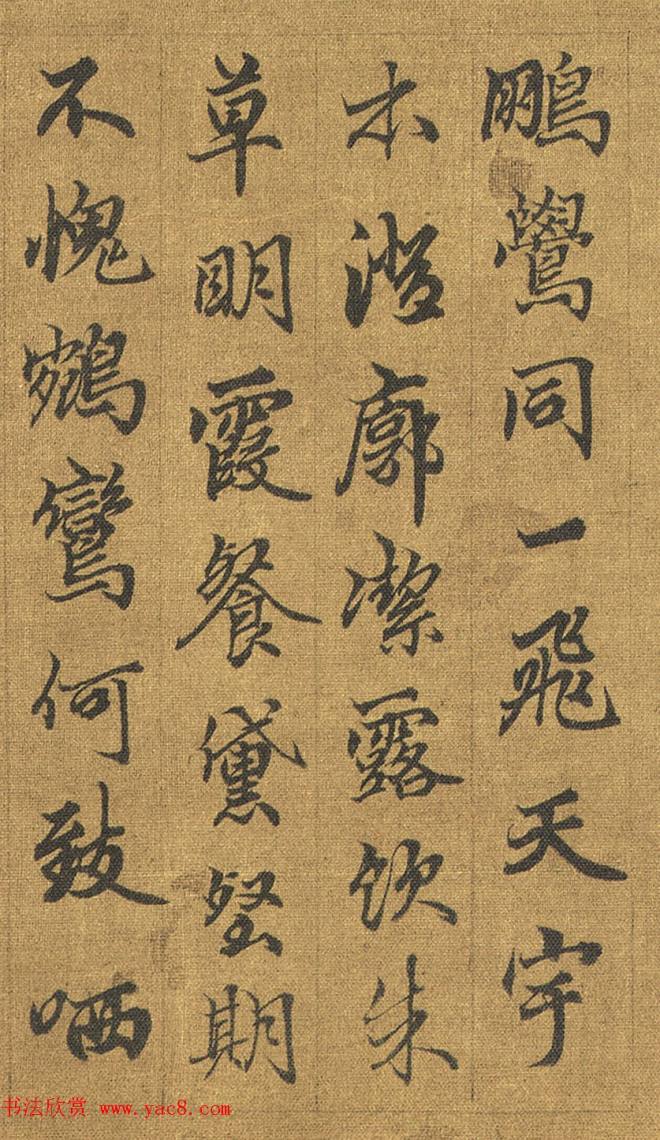 鵬鷽同一飛天宇
本澄廓潔露飲朱
草明霞餐黛壑期
不愧鵷鸞何致哂
书法欣赏 www.yac8.com